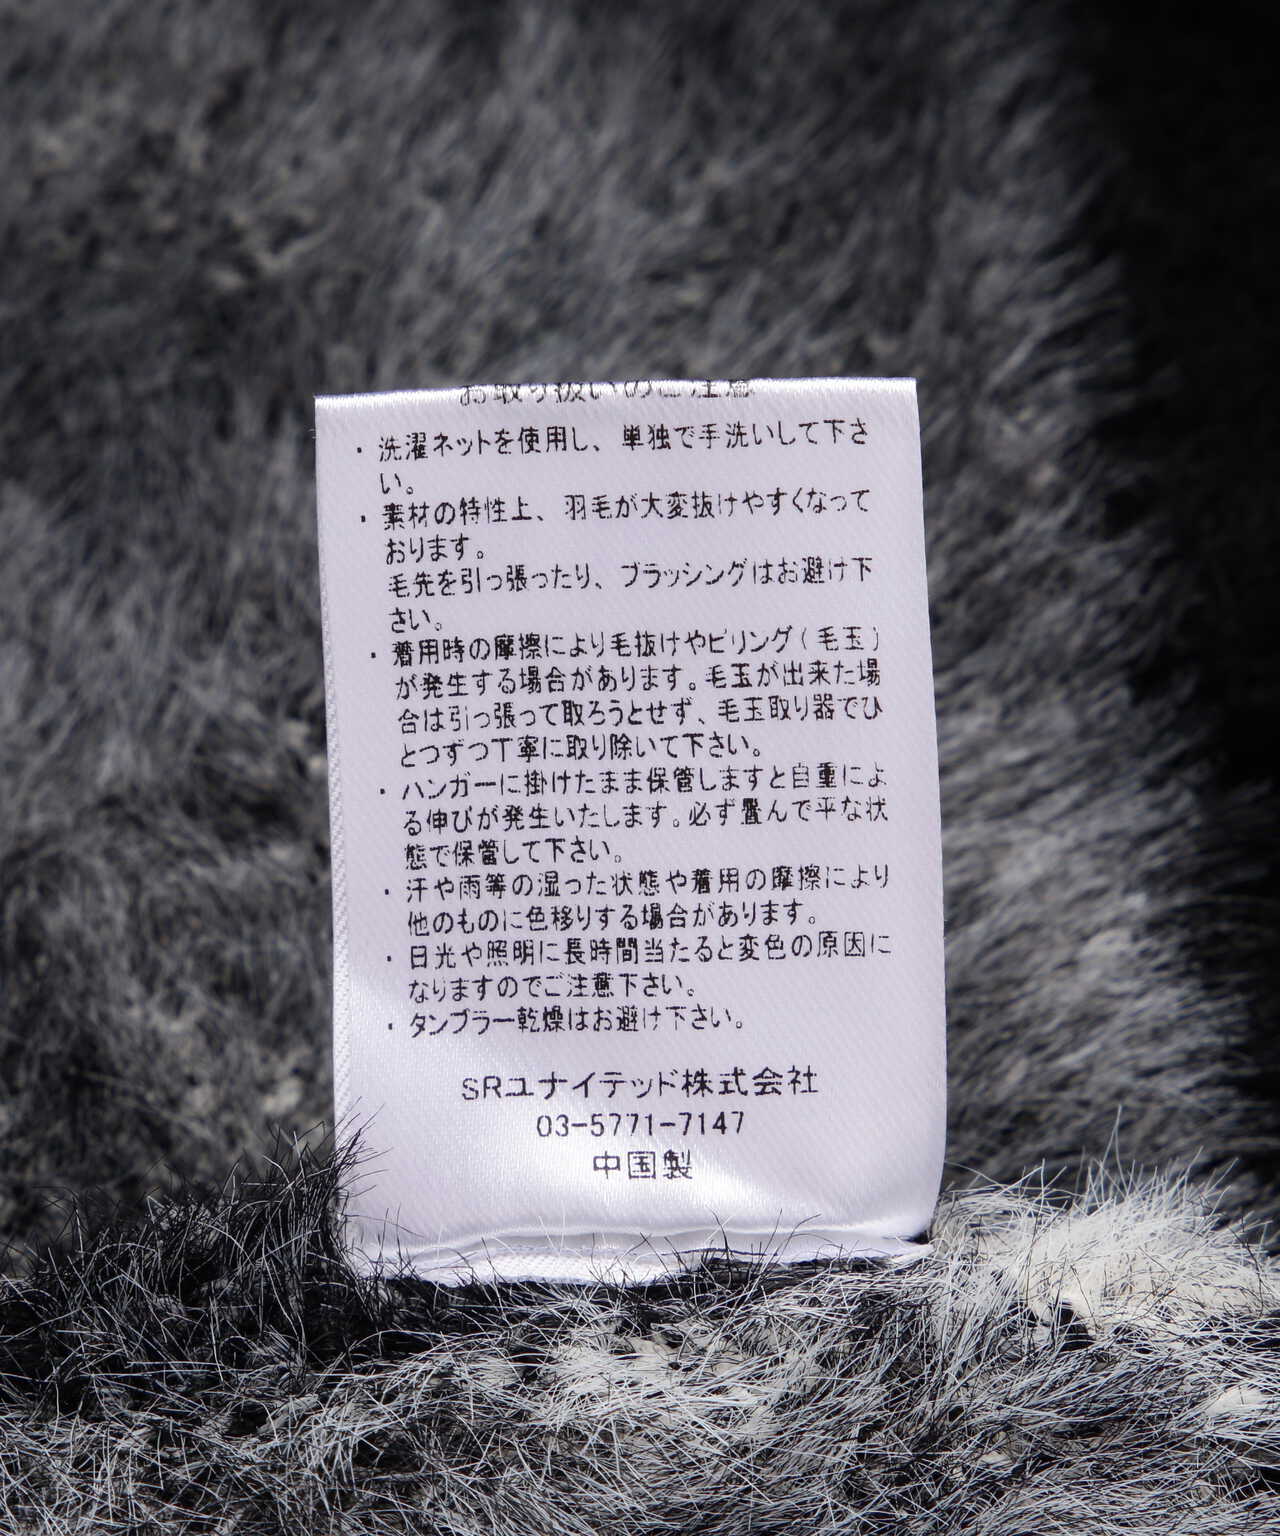 お取り扱いのご注意
・洗濯ネットを使用し、単独で手洗いして下さ
い。
・素材の特性上、羽毛が大変抜けやすくなって
おります。
毛先を引っ張ったり、ブラッシングはお避け下
さい。
・着用時の摩擦により毛抜けやピリング(毛玉)
が発生する場合があります。毛玉が出来た場
合は引っ張って取ろうとせず、毛玉取り器でひ
とつずつ丁寧に取り除いて下さい。
・ハンガーに掛けたまま保管しますと自重によ
る伸びが発生いたします。必ず畳んで平な状
態で保管して下さい。
・汗や雨等の湿った状態や着用の摩擦により
他のものに色移りする場合があります。
・日光や照明に長時間当たると変色の原因に
なりますのでご注意下さい。
・タンブラー乾燥はお避け下さい。
SRユナイテッド株式会社
03-5771-7147
中国製